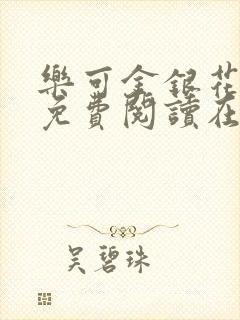 樂可金銀花
免費閱讀在
吳碧珠